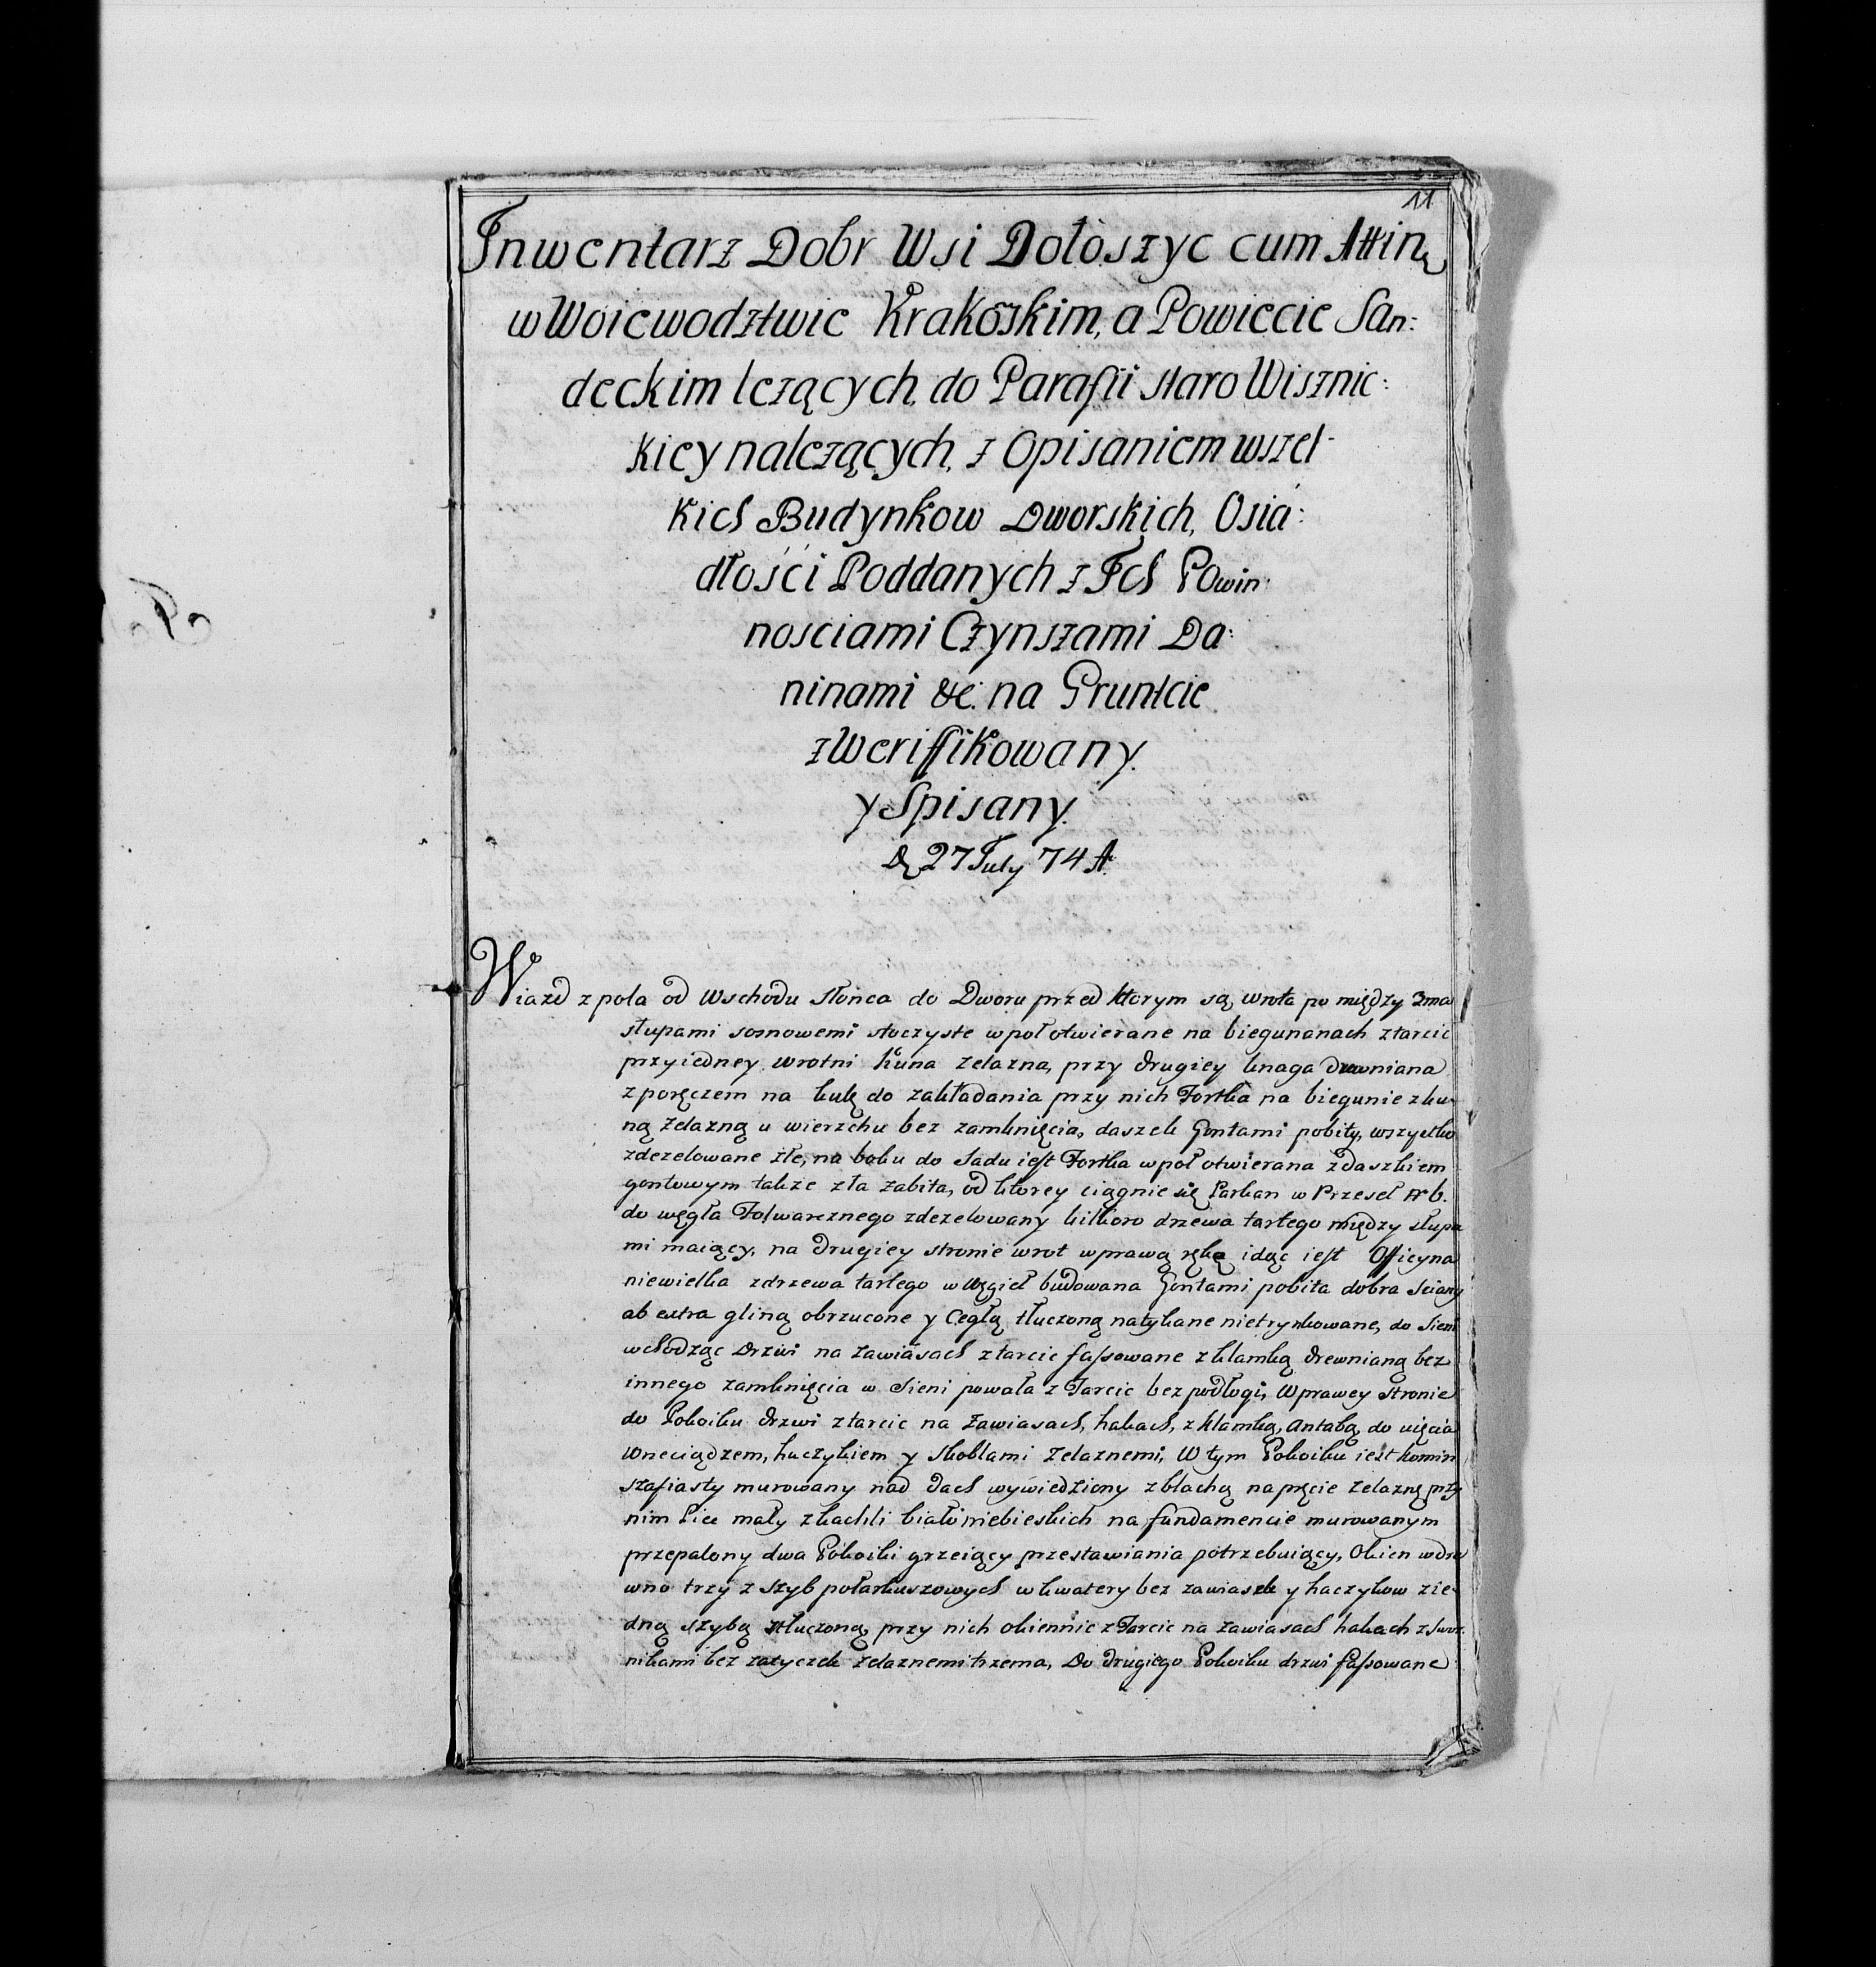 11
Inwentarz Dobr Wsi Dołoszyc cum Attin
w Woiewodztwie Krakoskim, a Powiecie San:
deckim lezących, do Parafii staro Wisznic:
kiey nalezących, z Opisaniem wszel-
kich Budynkow Dworskich, Osia:
dłości Poddanych z Ich Powin:
nosciami Czynszami Da:
ninami &c. na Gruntcie
zWeriffikowany.
y Spisany.
D 27 July 74 A.
Wiazd z pola od Wschodu słonca do Dworu przed ktorym są, wrota po między 3ma
słupami sosnowemi stoczyste w poł otwierane na biegunanach z tarcic
przyiedney wrotni kuna zelazna, przy drugiey knaga drewniana
z poręczem na kulę do zakładania przy nich Fortka na biegunie z ku-
ną zelazną u wierzchu bez zamknięcia, daszek Gontami pobity, wszystko
zdezelowane złe, na boku do Sadu iest Fortka w poł otwierana z daszkiem
gontowym takze zła zabita, od ktorey ciągnie się Parkan w Przeseł Nr 6.
do węgła Folwarcznego zdezelowany kilkoro drzewa tartego między słupa
mi maiący, na drugiey stronie wrot w prawą rękę idąc iest Officyna
niewielka z drzewa tartego w Węgieł budowana Gontami pobita dobra sciany
ab extra gliną obrzucone y Cegłą tłuczoną natykane nietynkowane, do Sieni
wchodząc Drzwi na zawiasach z tarcic fassowane z klamką drewnianą bez
innego zamknięcia w Sieni powała z Tarcic bez podłogi, W prawey stronie
do Pokoiku drzwi z tarcic na zawiasach, hakach, z klamką, Antabą, do uięcia
Wneciądzem, haczykiem y skoblami zelaznemi, W tym Pokoiku iest komin
szafiasty murowany nad dach wywiedziony z blachą na pręcie zelazną przy
nim Piec mały z kachli białoniebieskich na fundamencie murowanym
przepalony dwa Pokoiki grzeiący przestawiania potrzebuiący, Okien w dre
wno trzy z szyb połarkuszowych w kwatery bez zawiasek y haczykow z ie-
dną szybą stłuczoną, przy nich okiennic z Tarcic na zawiasach hakach z swor
nikami bez zatyczek zelaznemi trzema, Do drugiego Pokoiku drzwi fassowane